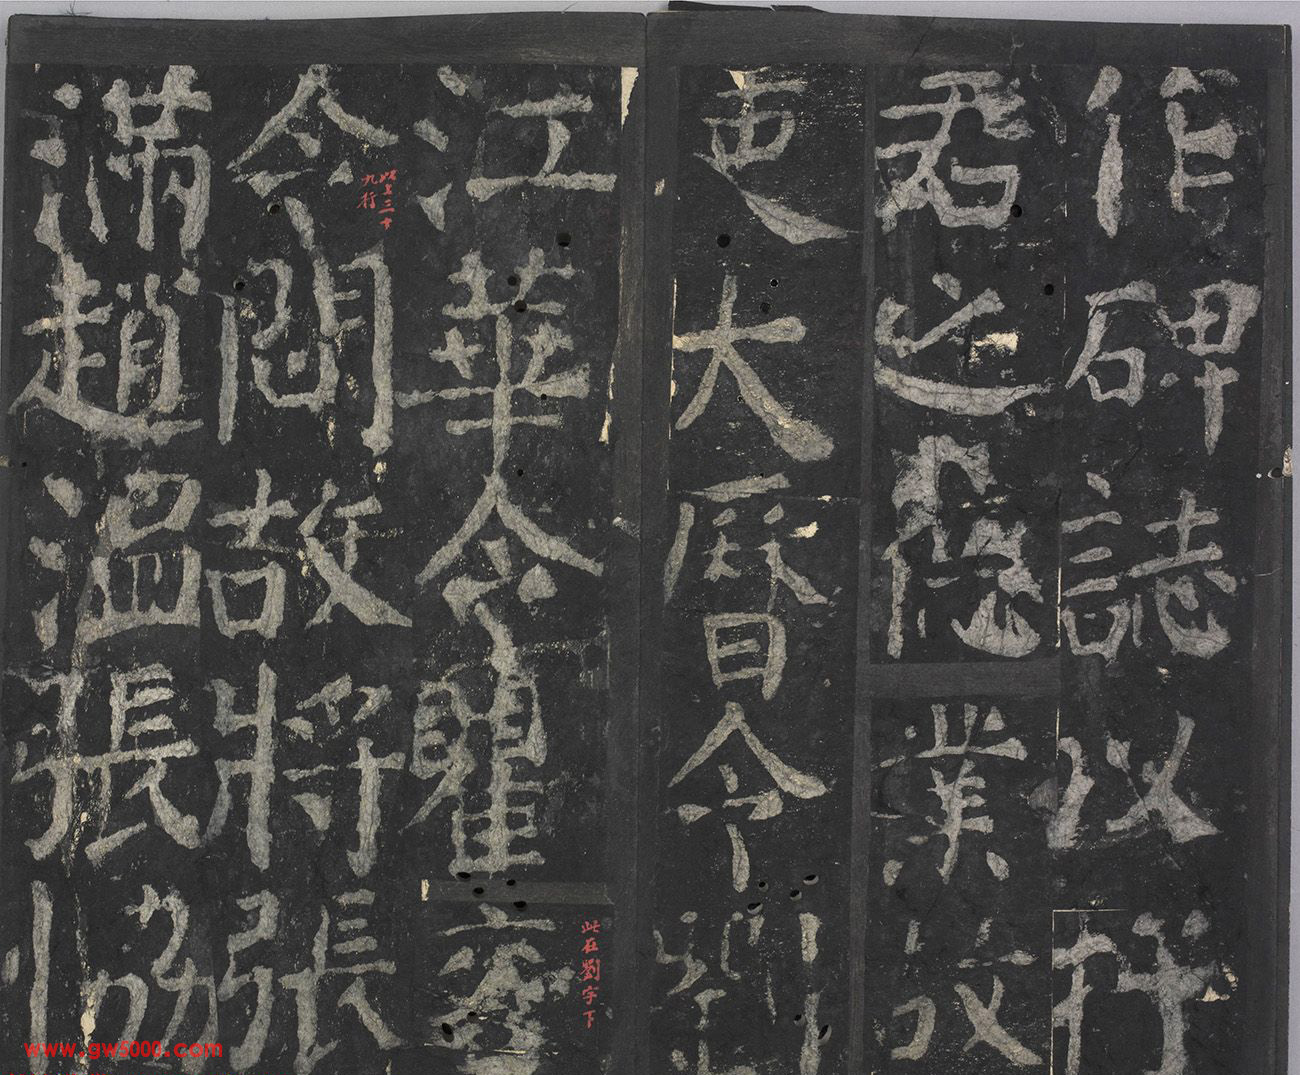 作碑誌以行
君之德業故
吏大曆日令劉
江華令瞿鑾
此在劉字下
令問故將張
此上三十九行
滿趙溫張協
www.gw5000.com